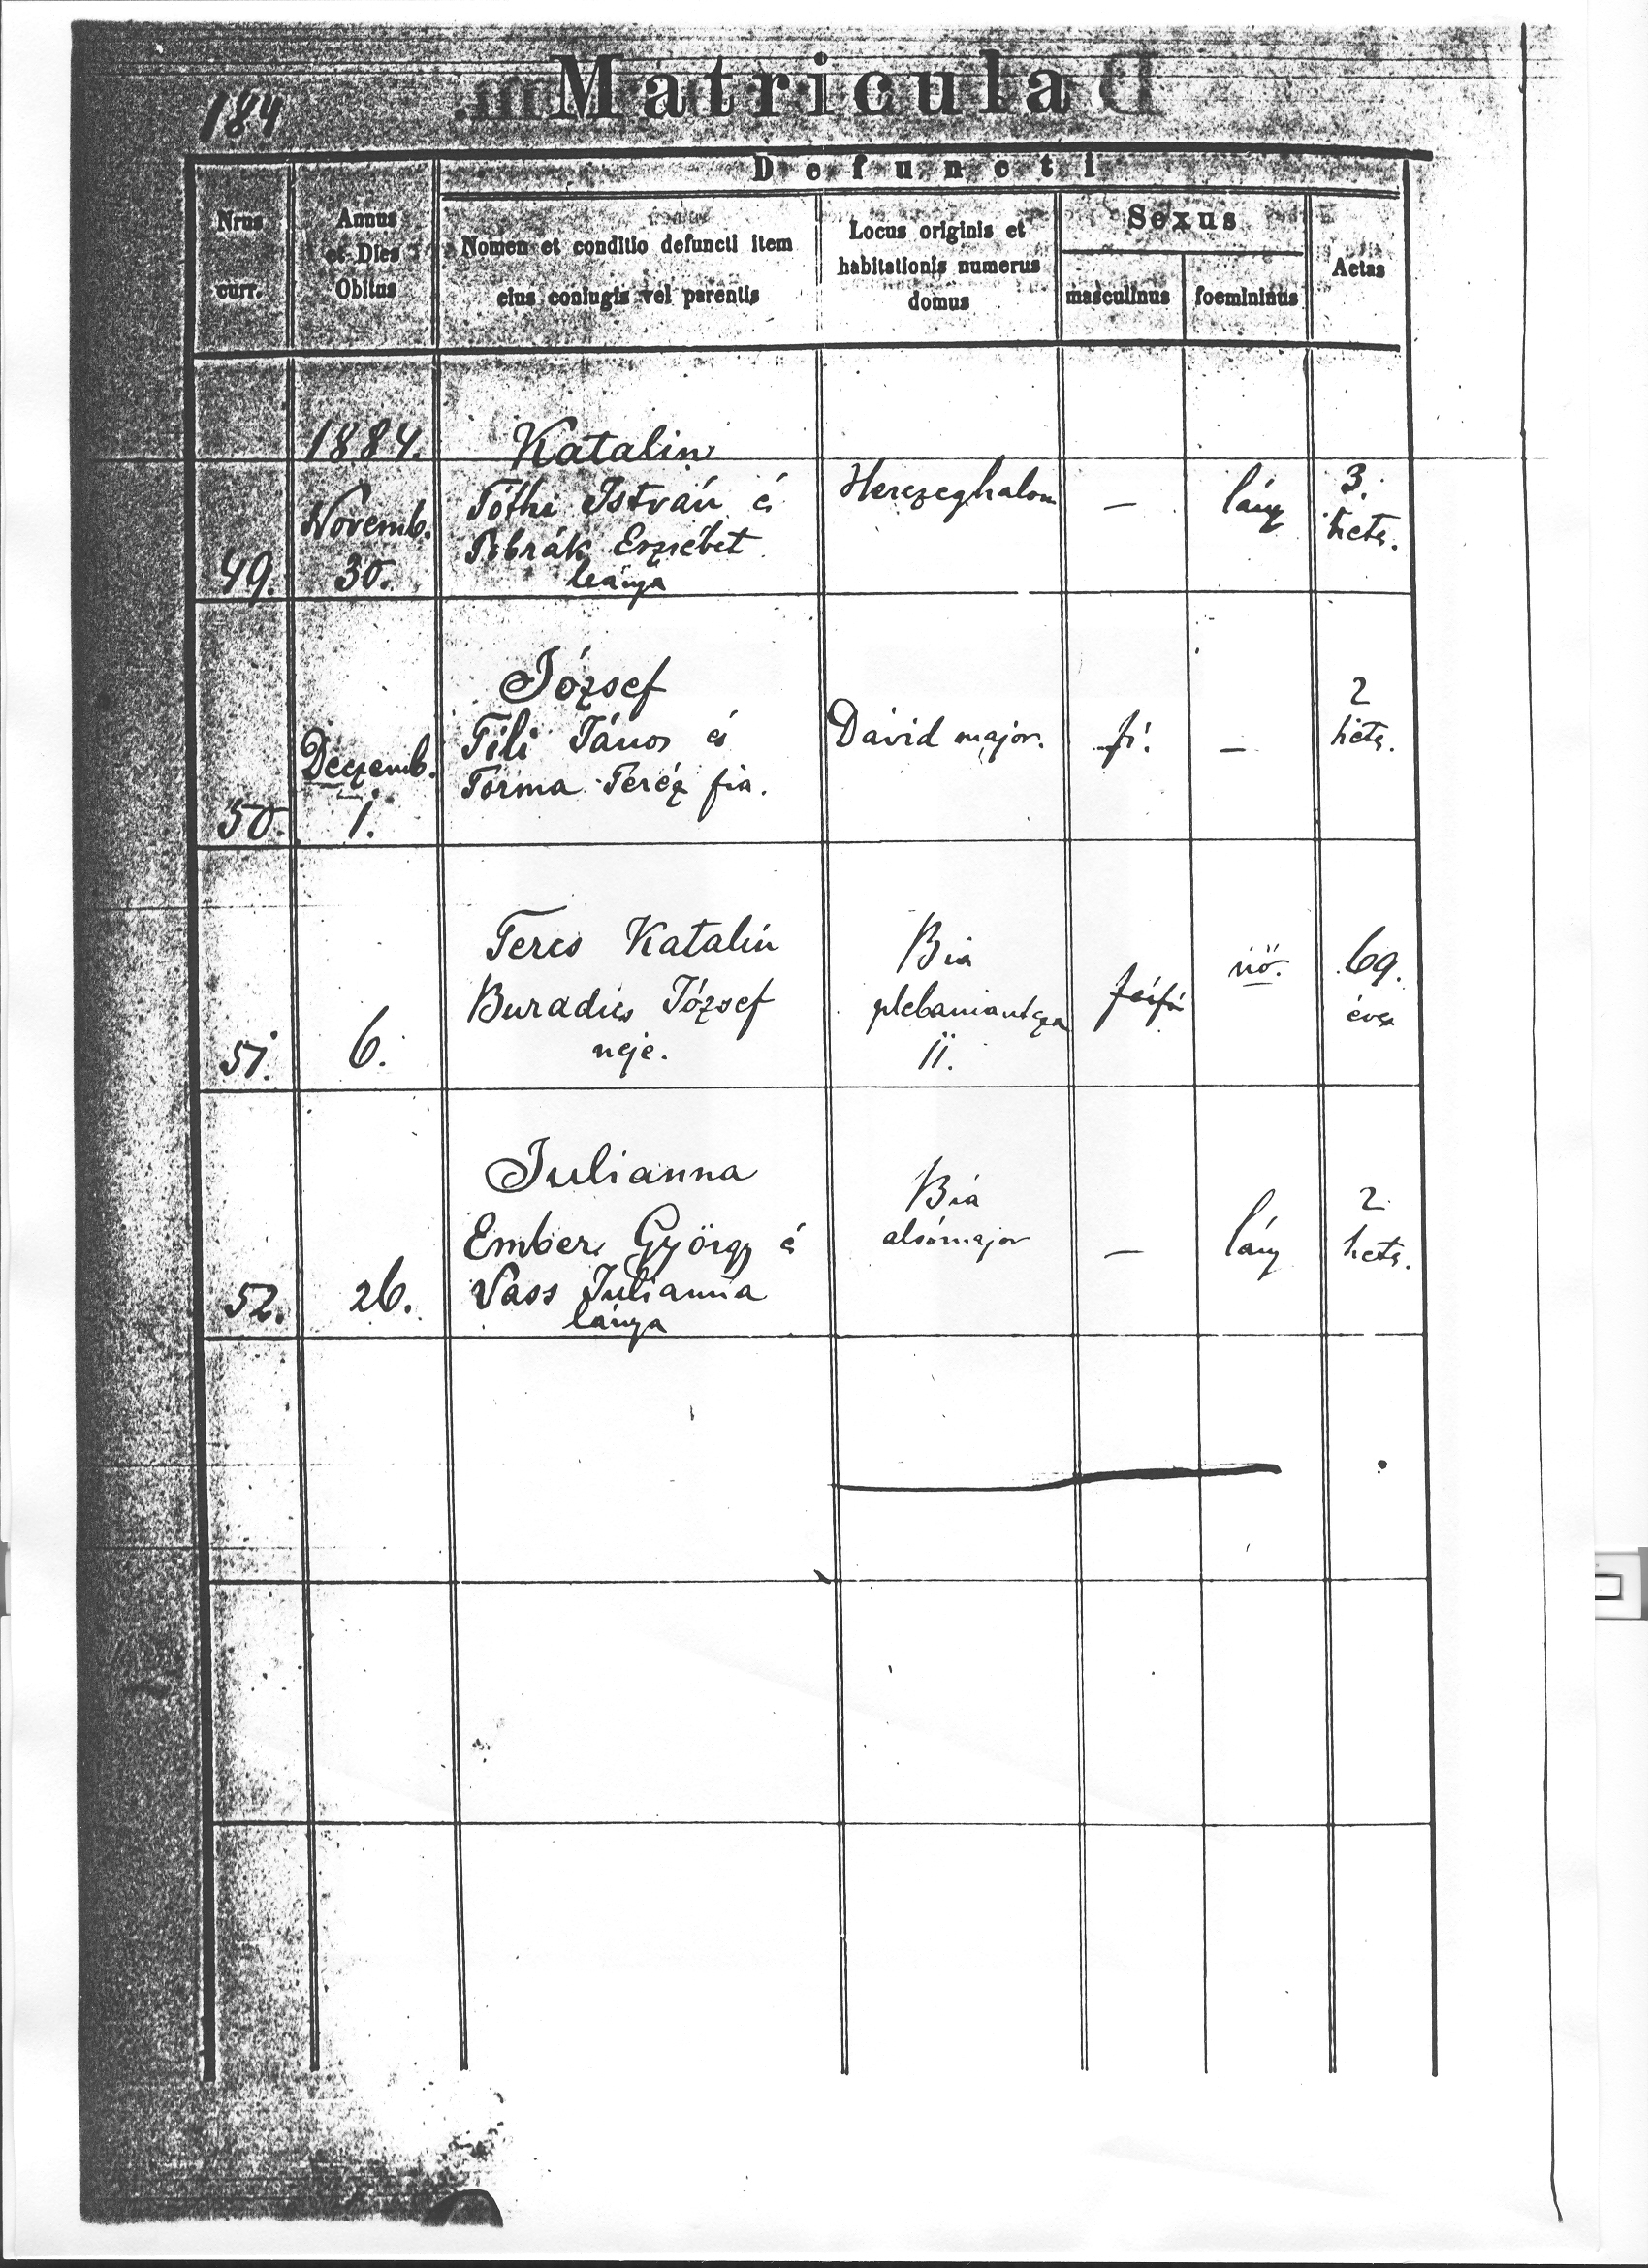 184
Matricula
Defuncti
Nrus
curr.
Annus
et Dies
Obitus
Nomen et conditio defuncti item
eius coniugis vel parentis
Locus originis et
habitationis numerus
domus
Sexus
masculinus
foemininus
Aetas
1884.
Novemb.
49. 30.
Katalin
Tóth István é
Erzsébet
leánya
Herczeghalom
—
lány
3.
hets.
Deczemb.
50. 1.
József
Fili János és
Torma Teréz fia.
Dávid major.
fi.
—
2
hets.
51. 6.
Teres Katalin
Buradics József
neje.
Bia
plebaniautcza
11.
férfi
nő.
69.
éves
52. 26.
Julianna
Ember György é
Vass Julianna
lánya
Bia
alsómajor
—
lány
2
hets.